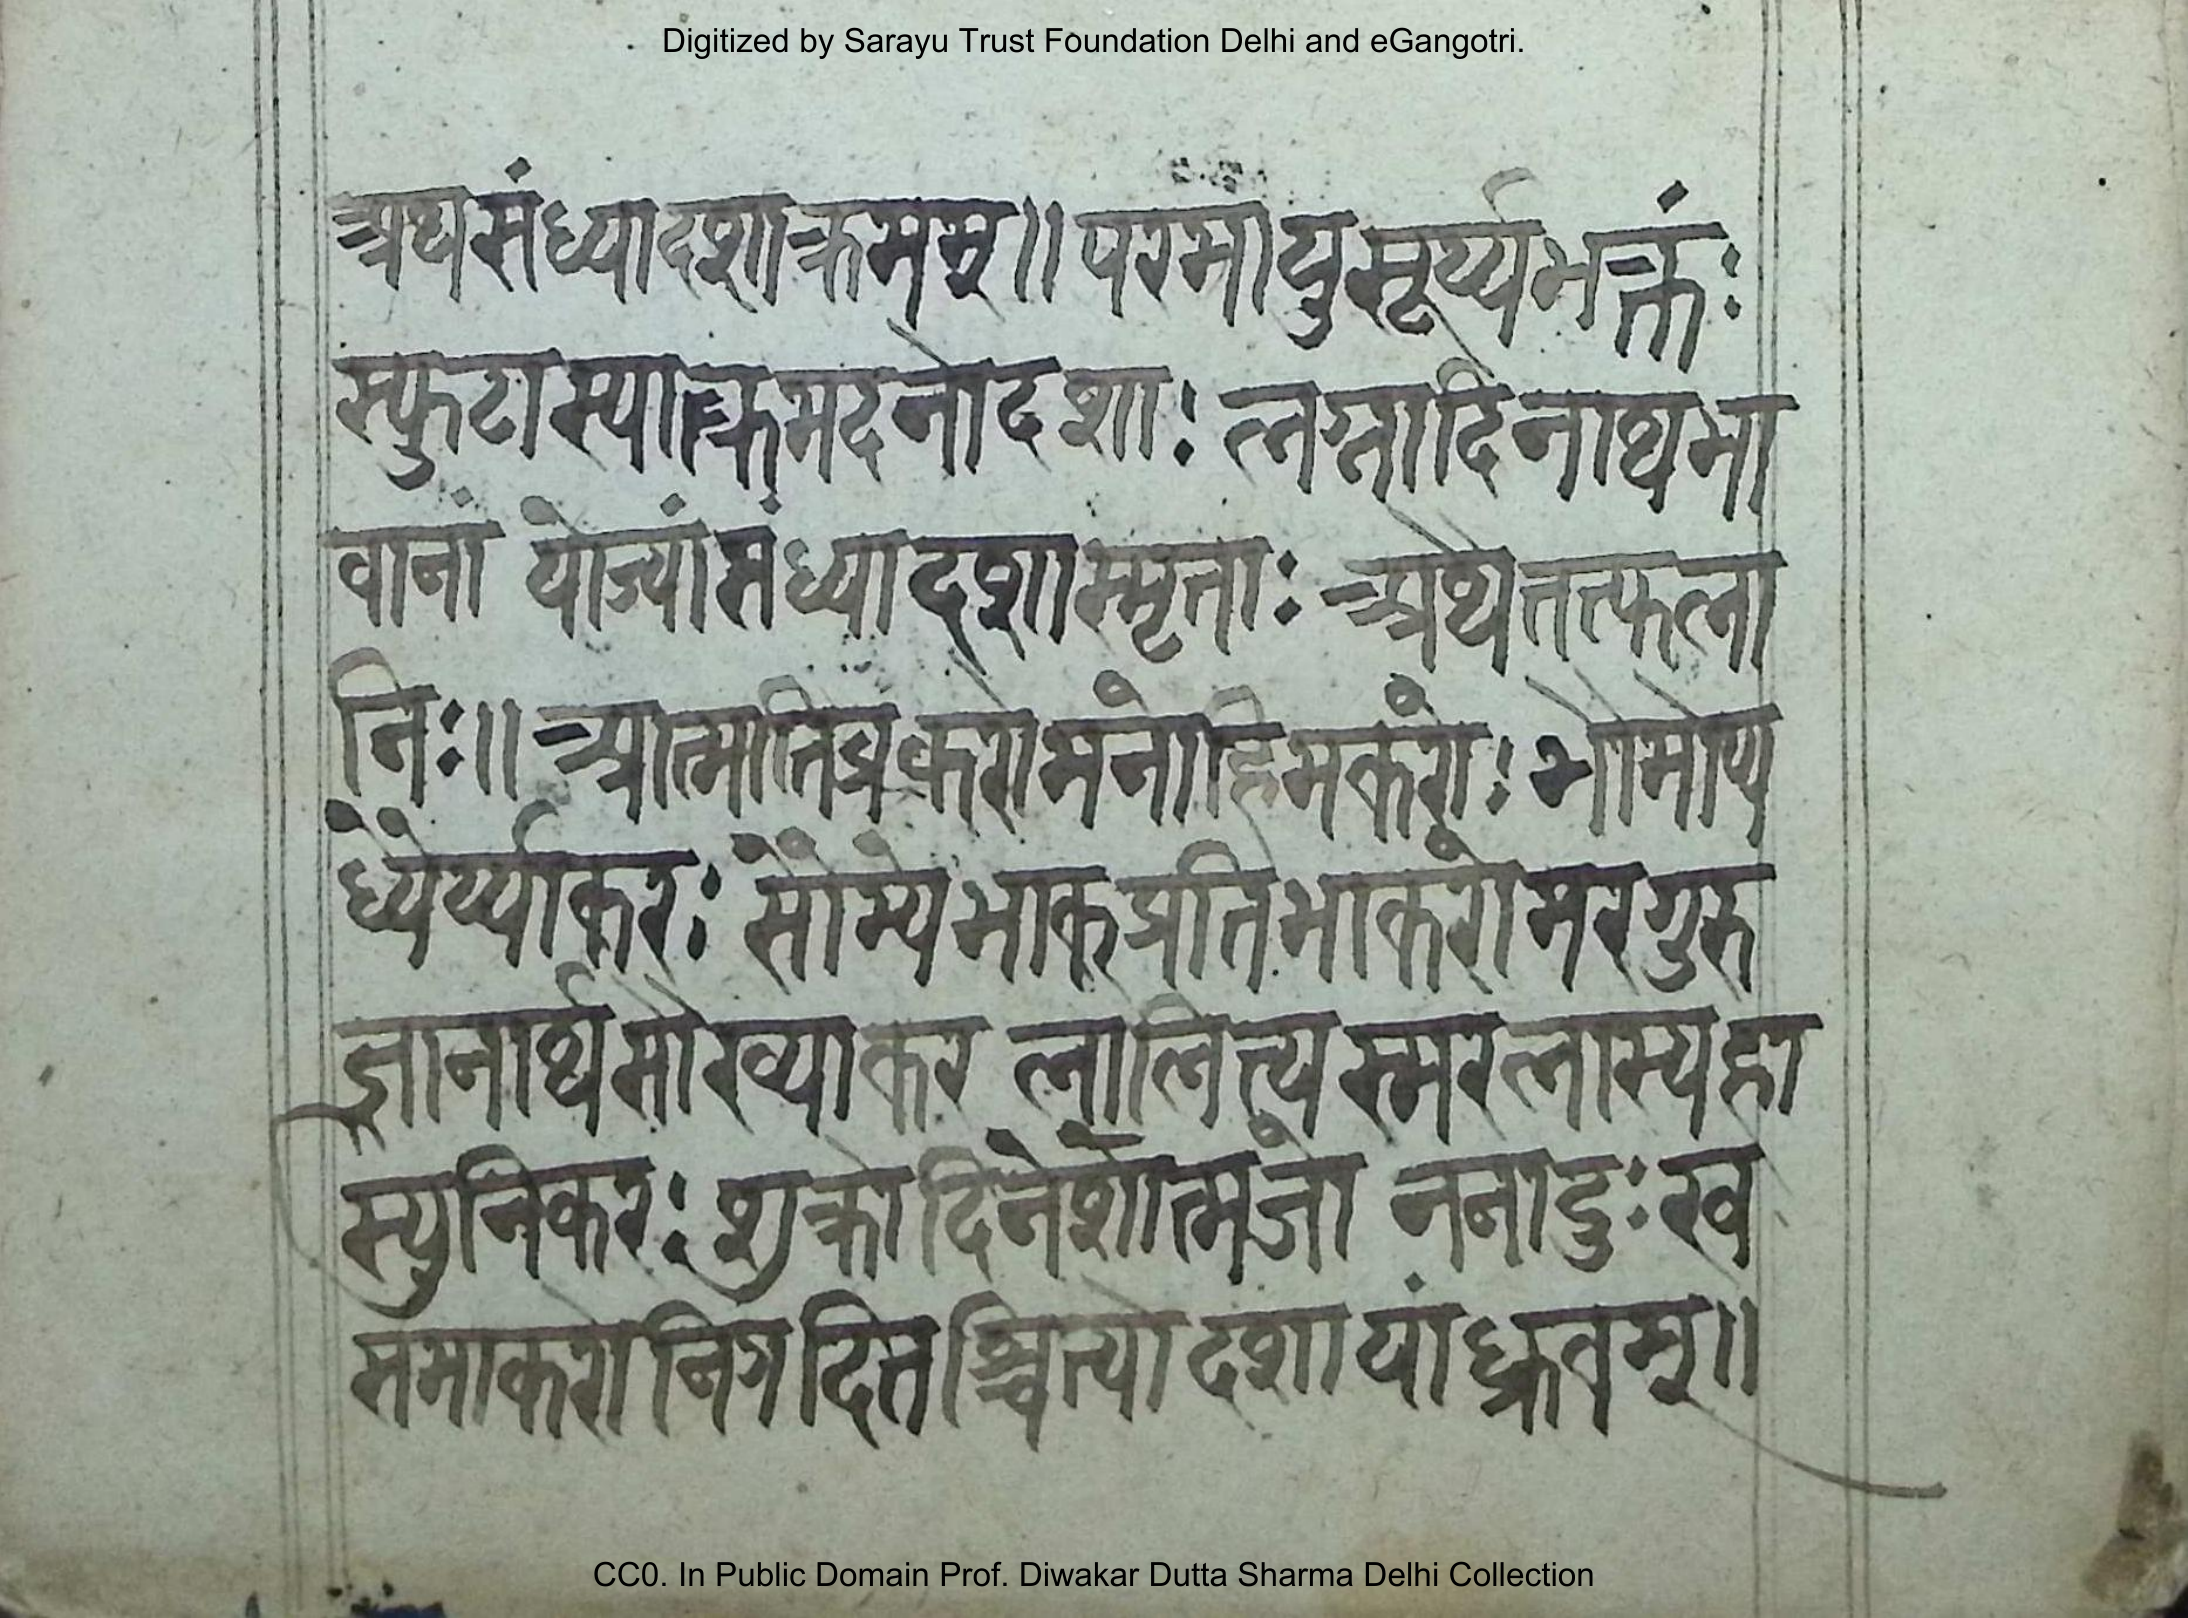 Digitized by Sarayu Trust Foundation Delhi and eGangotri.
अथसंध्यादशाक्रमम्॥ परमायुसूर्य्यभक्तं:
स्फुटास्यात्क्रमदनोदशा: लग्नादिनाथभा
वानां योज्यांसंध्यादशास्मृता: अथेतत्फला
नि:॥ आत्मातिव्रकरोमनोहिमकरो: भोमोप्य
ध्येर्य्याकर: सोम्येभाकप्रतिभाकरोमरगुरु
ज्ञानार्थसोख्याकर लालित्यस्मरलास्यहा
स्युनिकर: शुक्रोदिनेशोत्मजो ननादु:ख
समाकरोनिगदितश्चित्यो दशायांध्क्रतम्॥
CC0. In Public Domain Prof. Diwakar Dutta Sharma Delhi Collection